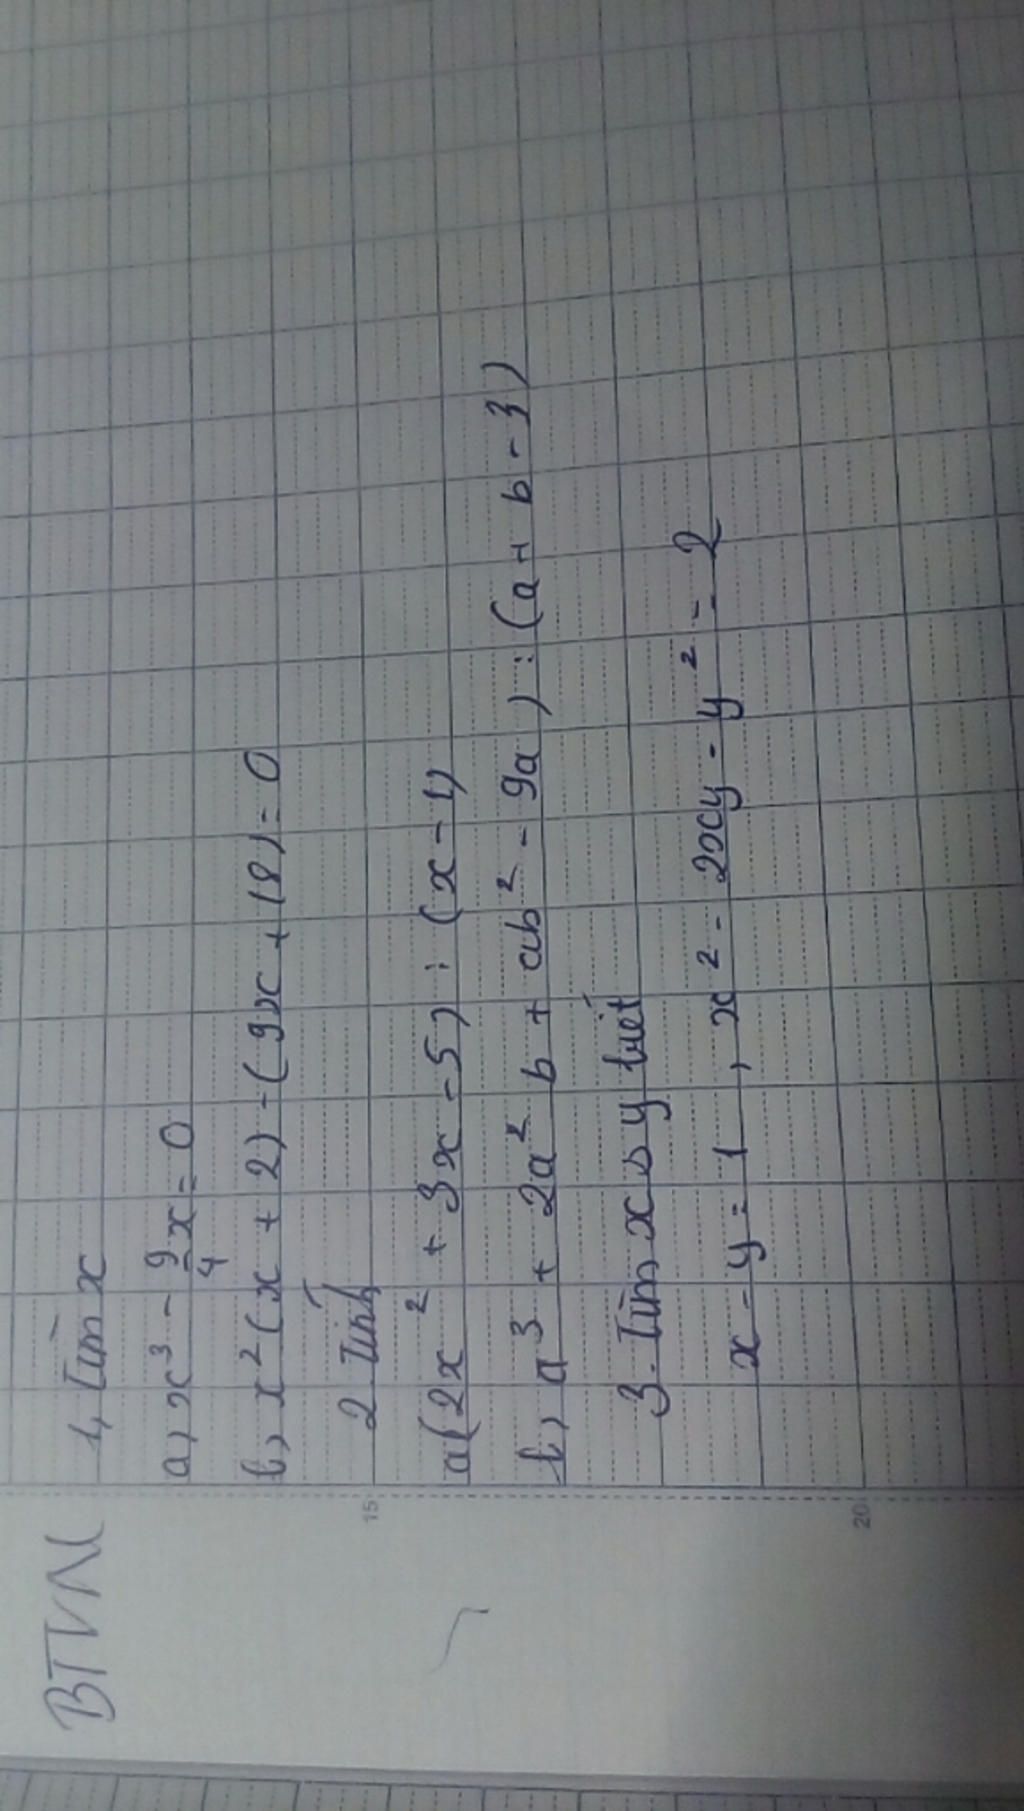 BTVN
1, Tìm x
a, x³ - 9/4 x = 0
b, x² (x + 2) - (9x + 18) = 0
2 Tính
a(2x² + 3x - 5) : (x - 1)
b, a³ + 2a² b + ab² - 9a) : (a + b - 3)
3. Tìm x, y biết
x - y = 1, x² - 2xy - y² = 2
15
20